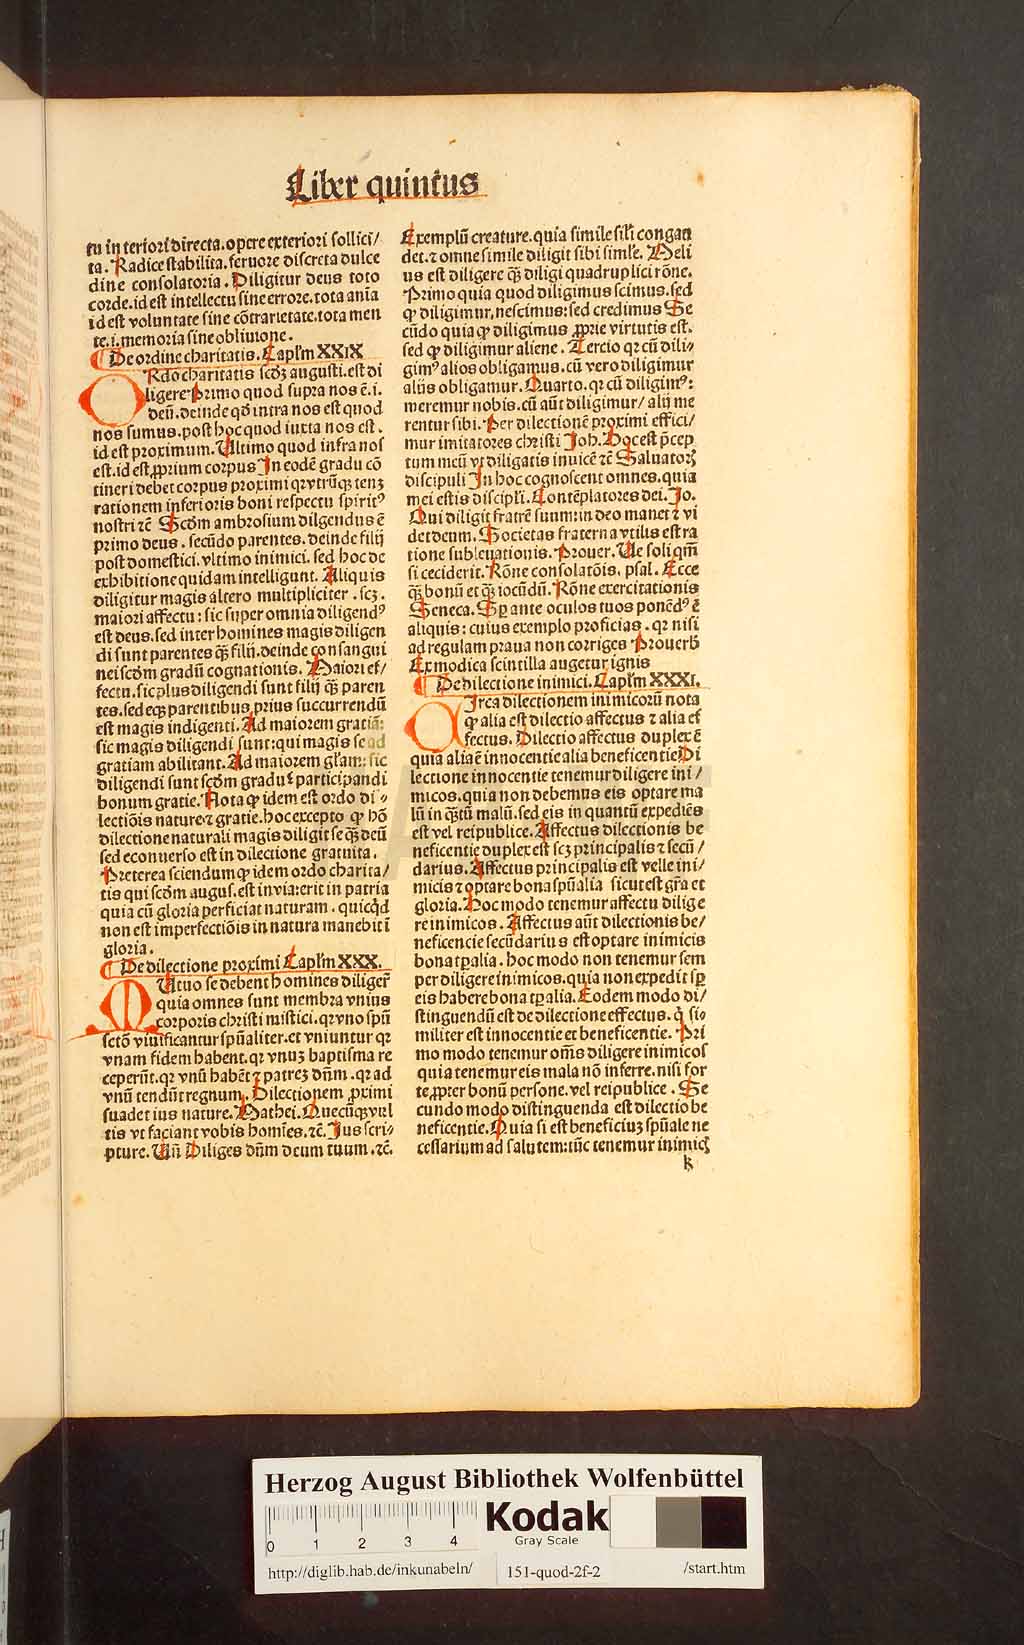 Liber quintus
tu in teriori directa. opere exteriori sollici/
ta. Radice stabilita. feruore discreta dulce
dine consolatoria. Diligitur deus toto
corde. id est intellectu sine errore. tota aīa
id est voluntate sine cōtrarietate. tota men
te. i. memoria sine obliuione.
De ordine charitatis. Caplm XXIX
ORdo charitatis scdʒ augusti. est di
ligere Primo quod supra nos ē. i.
deū. deinde qd intra nos est quod
nos sumus. post hoc quod iuxta nos est.
id est proximum. Ultimo quod infra nos
est. id est ꝓprium corpus In eodē gradu cō
tineri debet corpus proximi qꝛ vtrūqꝫ tenʒ
rationem inferioris boni respectu spiritꝰ
nostri ꝛc̄ Scdm ambrosium dilgendus ē
primo deus. secūdo parentes. deinde filij
post domestici. vltimo inimici. sed hoc de
exhibitione quidam intelligunt. Aliquis
diligitur magis altero multipliciter. scʒ.
maiori affectu: sic super omnia diligendꝰ
est deus. sed inter homines magis diligen
di sunt parentes qꝫ̄ filij. deinde consangui
nei scdm gradū cognationis. Maiori ef/
fectu. sic plus diligendi sunt filij qꝫ̄ paren
tes. sed eqꝫ parentibus prius succurrendū
est magis indigenti. Ad maiorem gratiā:
sic magis diligendi sunt: qui magis se ad
gratiam abilitant. Ad maiorem glām: sic
diligendi sunt scdm gradus participandi
bonum gratie. Nota ꝙ idem est ordo di/
lectiōis nature ⁊ gratie. hoc excepto ꝙ hō
dilectione naturali magis diligit se qꝫ̄ deū
sed econuerso est in dilectione gratuita.
Preterea sciendum ꝙ idem ordo charita/
tis qui scdm augus. est in via: erit in patria
quia cū gloria perficiat naturam. quicq̇d
non est imperfectiōis in natura manebit ī
gloria.
De dilectione proximi Caplm XXX.
MUtuo se debent homines diligeř
quia omnes sunt membra vnius
corporis christi mistici. qꝛ vno spū
sctō viuificantur spūaliter. et vniuntur qꝛ
vnam fidem habent. qꝛ vnuʒ baptisma re
ceperūt. qꝛ vnū habēt patreʒ dn̄m. qꝛ ad
vnū tendūt regnum. Dilectionem ꝓximi
suadet ius nature. Mathei. Quecūqꝫ vul
tis vt faciant vobis homīes. ꝛc̄. Jus scri-
pture. Un̄ Diliges dn̄m deum tuum. ꝛc̄.
Exemplū creature. quia simile sil'i congau
det. ⁊ omne simile diligit sibi simīe. Meli
us est diligere qꝫ̄ diligi quadruplici rōne.
Primo quia quod diligimus scimus. sed
ꝙ diligimur, nescimus: sed credimus Se
cūdo quia ꝙ diligimus ꝓprie virtutis est.
sed ꝙ diligimur aliene. Tercio qꝛ cū dili-
gimꝰ alios obligamus. cū vero diligimur
alijs obligamur. Quarto. qꝛ cū diligimꝰ:
meremur nobis. cū aūt diligimur/ alij me
rentur sibi. Per dilectionē proximi effici/
mur imitatores christi Joh. Hoc est p̄cep
tum meū vt diligatis inuicē ꝛc̄ Saluatorꝭ
discipuli In hoc cognoscent omnes. quia
mei estis discipl'i. Contēplatores dei. Jo.
Qui diligit fratrē suum in deo manet ⁊ vi
det deum. Societas fraterna vtilis est ra
tione subleuationis. Prouer. Ue soli qm̄
si ceciderit. Rōne consolatōis. psal. Ecce
qꝫ̄ bonū et qꝫ̄ iocūdū. Rōne exercitationis
Seneca. Sp̄ ante oculos tuos ponēdꝰ ē
aliquis: cuius exemplo proficias. qꝛ nisi
ad regulam praua non corriges Prouerb
Ex modica scintilla augetur ignis
De dilectione inimici. Caplm XXXI.
CIrca dilectionem inimicorū nota
ꝙ alia est dilectio affectus ⁊ alia ef
fectus. Dilectio affectus duplex ē
quia alia ē innocentie alia beneficentie Di
lectione innocentie tenemur diligere ini/
micos. quia non debemus eis optare ma
lū in qꝫ̄tū malū. sed eis in quantū expediēs
est vel reipublice. Affectus dilectionis be
neficentie duplex est scʒ principalis ⁊ secū/
darius. Affectus principalis est velle ini/
micis ⁊ optare bona spūalia sicut est gr̄a et
gloria. Hoc modo tenemur affectu dilige
re inimicos. Affectus aūt dilectionis be/
neficencie secūdarius est optare inimicis
bona tp̄alia. hoc modo non tenemur sem
per diligere inimicos. quia non expedit sp̄
eis habere bona tp̄alia. Eodem modo di/
stinguendū est de dilectione effectus. q̇ si-
militer est innocentie et beneficentie. Pri
mo modo tenemur om̄s diligere inimicos
quia tenemur eis mala nō inferre. nisi for
te ꝓpter bonū persone. vel reipublice. Se
cundo modo distinguenda est dilectio be
neficentie. Quia si est beneficiuʒ spūale ne
cessarium ad salutem: tūc tenemur inimicꝭ
k
Herzog August Bibliothek Wolfenbüttel
0 1 2 3 4
Kodak
Gray Scale
http://diglib.hab.de/inkunabeln/ 151-quod-2f-2 /start.htm